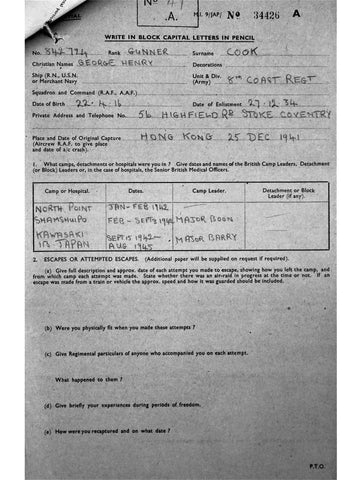 .A.
M.I. 9/JAP/ No 34426 A
WRITE IN BLOCK CAPITAL LETTERS IN PENCIL
No. 842774 Rank GUNNER Surname COOK
Christian Names GEORGE HENRY Decorations
Ship (R.N., U.S.N. or Merchant Navy Unit & Div. (Army) 8TH COAST REGT
Squadron and Command (R.A.F., A.A.F.)
Date of Birth 22.4.16 Date of Enlistment 27.12.34
Private Address and Telephone No. 56 HIGHFIELD RD STOKE COVENTRY
Place and Date of Original Capture HONG KONG 25 DEC 1941
(Aircrew R.A.F. to give place
and date of a/c crash).
1. What camps, detachments or hospitals were you in ? Give dates and names of the British Camp Leaders, Detachment
(or Block) Leaders or, in the case of hospitals, the Senior British Medical Officers.
Camp or Hospital. Dates. Camp Leader. Detachment or Block Leader (if any).
NORTH POINT JAN-FEB 1942
SHAMSHUIPO FEB - SEPT 1942 MAJOR BOON
KAWASAKI SEPT 15 1942- MAJOR BARRY
1B JAPAN AUG 1945
2. ESCAPES OR ATTEMPTED ESCAPES. (Additional paper will be supplied on request if required).
(a) Give full description and approx. date of each attempt you made to escape, showing how you left the camp, and
from which camp each attempt was made. State whether there was an air-raid in progress at the time or not. If an
escape was made from a train or vehicle the approx. speed and how it was guarded should be included.
(b) Were you physically fit when you made these attempts ?
(c) Give Regimental particulars of anyone who accompanied you on each attempt.
What happened to them ?
(d) Give briefly your experiences during periods of freedom.
(e) How were you recaptured and on what date ?
P.T.O.